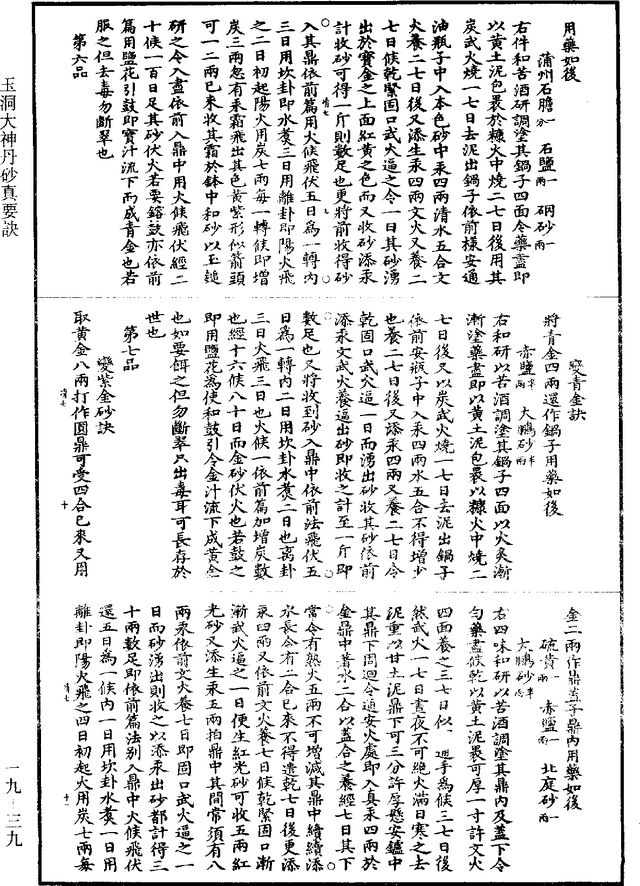 用藥如後
蒲州石膽八分 石鹽一兩 硇砂一兩
右件和苦酒研調塗其鍋子四面令藥盡即
以黃土泥包裹於糠火中燒二七日後用其
炭武火燒一七日去泥出鍋子依前樣安通
油瓶子中入本色砂中汞四兩清水五合文
火養二七日後又添生汞四兩文火又養二
七日候乾緊固口武火逼之令一日其砂湧
出於寶金之上面紅黃之色而又收砂添汞
計收砂可得一斤則數足也更將前收得砂
入其鼎依前篇用火候飛伏五日為一轉內
三日用坎卦即水煑三日用離卦即陽火飛
之二日初起陽火用炭七兩每一轉候即增
炭三兩忽有汞霜飛出其色黃紫形似箭頭
可一二兩已來收其霜於鉢中和砂以玉鎚
研之令入盡依前入鼎中用火候飛伏經二
十候一百日足其砂伏火若要鎔鼓亦依前
篇用鹽花引鼓即寶汁流下而成青金也若
服之但去毒勿斷翠也
第六品
變青金訣
將青金四兩還作鍋子用藥如後
赤鹽一兩半 大鵬砂一兩半
右和研以苦酒調塗其鍋子四面以火炙漸
漸塗藥盡即以黃土泥包裹以糠火中燒二
七日後又以炭武火燒一七日去泥出鍋子
依前安瓶子中入汞四兩水五合不得增少
也養二七日後又添汞四兩又養二七日令
乾固口武火逼一日而湧出砂收其砂依前
添汞文武火養逼出砂即收之計至一斤即
數足也又將收到砂入鼎中依前法飛伏五
日為一轉內二日用坎卦水煑二日也离卦
三日火飛三日也火候一依前篇加增炭數
也經十六候八十日而金砂伏火也若鼓之
即用鹽花為使和鼓引令金汁流下成黃金
也如要餌之但勿斷翠只出毒耳可長存於
世也
第七品
變紫金砂訣
取黃金八兩打作圓鼎可受四合已來又用
金二兩作鼎蓋子鼎內用藥如後
硫黃一兩 赤鹽一兩 北庭砂一兩
大鵬砂一兩半
右四味和研以苦酒調塗其鼎內及蓋下令
勻藥盡候乾以黃土泥裹可厚一寸許文火
四面養之三七日似通手為候三七日後
然武火一七日晝夜不可絕火滿日寒之去
泥重以甘土泥鼎下可三分許厚懸安鑪中
其鼎下周迴令通安火處即入真汞四兩於
金鼎中著水二合以蓋合之養經七日其下
常令有熱火五兩不可增減其鼎中續續添
水長令有二合已來不得遣乾七日後更添
汞四兩又依前文火養七日候乾緊固口漸
漸武火逼之一日便生紅光砂可收五兩紅
光砂又添生汞五兩拍鼎中其間常須有八
兩汞依前文火養七日即固口武火逼之一
日而砂湧出則收之以添汞出砂都計得三
十兩數足即依前篇法别入鼎中火候飛伏
還五日為一候內一日用坎卦水煑一日用
離卦即陽火飛之四日初起火用炭七兩每
玉洞大神丹砂真要訣
一九-三九